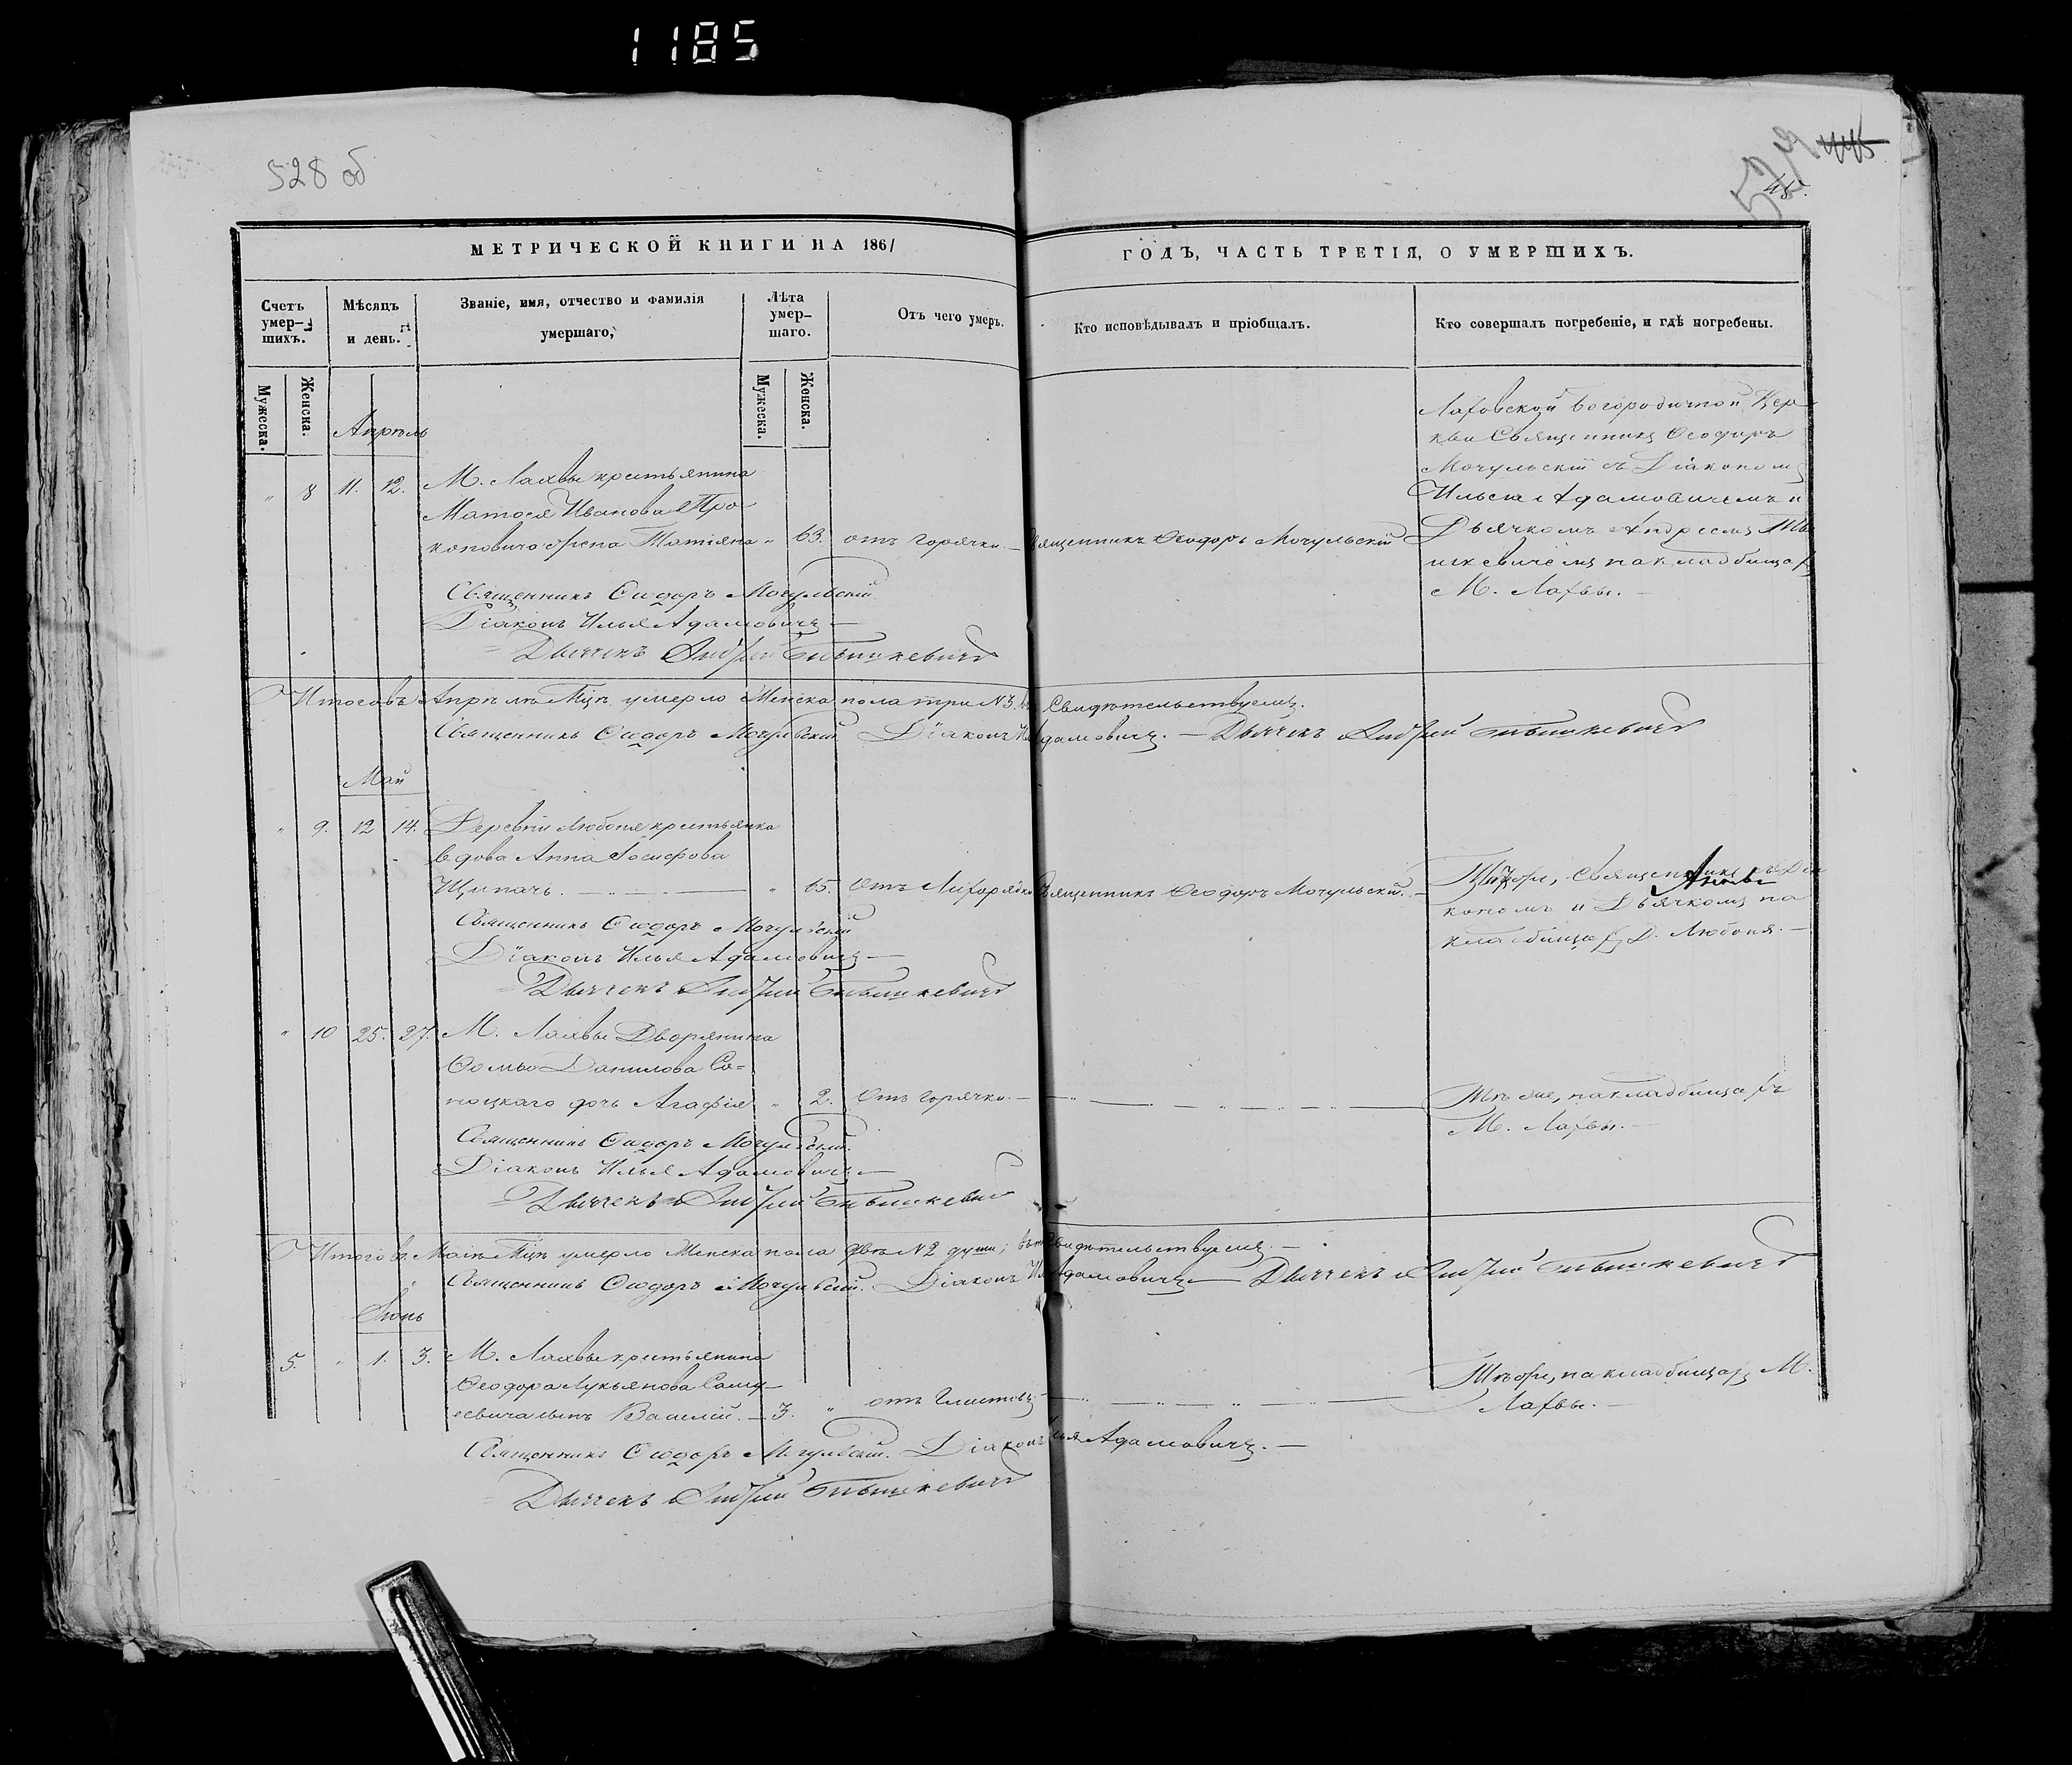 1185
528 об
529
445
МЕТРИЧЕСКОЙ КНИГИ НА 1861
ГОДЪ, ЧАСТЬ ТРЕТІЯ, О УМЕРШИХЪ.
Счетъ умер-шихъ.
Мѣсяцъ и день.
Званіе, имя, отчество и фамилія умершаго,
Лѣта умер-шаго.
Отъ чего умеръ.
Кто исповѣдывалъ и пріобщалъ.
Кто совершалъ погребеніе, и гдѣ погребены.
Мужеска.
Женска.
Мужеска.
Женска.
Апрѣль
" 8 11. 12.
М. Лахвы крестьянина
Матѳея Иванова Про
коповича жена Татіяна " 63. отъ горячки. — Священникъ Ѳеодоръ Мочульскій
Лаховской Богородичной Цер
кви Священникъ Ѳеодоръ
Мочульскій съ Діакономъ
Ильею Адамовичемъ и
Дьячкомъ Андреемъ
на кладбищахъ
М. Лахвы. —
Священникъ Ѳеодоръ Мочульскій.
Діаконъ Илья Адамовичъ —
Дьячекъ Андрей
Итого въ Апрѣлѣ М-цѣ умерло Женска пола три № 3. Свидѣтельствуемъ.
Священникъ Ѳеодоръ Мочульскій Діаконъ Адамовичъ. — Дьячекъ Андрей
Май
" 9. 12 14.
Деревни Любоня крестьянка
вдова Анна Іосифова
Щипачъ. — " 65. Отъ Лихорадки Священникъ Ѳеодоръ Мочульскій. —
Тѣже, Священникъ съ Діа
кономъ и Дьячкомъ на
кладбищахъ Д. Любоня. —
Священникъ Ѳеодоръ Мочульскій
Діаконъ Илья Адамовичъ —
Дьячекъ Андрей
" 10 25. 27.
М. Лахвы Дворянина
Ѳомы Данилова Са=
ноцкаго дочь Агафія " 2. Отъ горячки. —
Тѣ же, на кладбищахъ
М. Лахвы. —
Священникъ Ѳеодоръ Мочульскій.
Діаконъ Илья Адамовичъ —
Дьячекъ Андрей
Итого въ Маѣ М-цѣ умерло Женска пола двѣ № 2 души; свидѣтельствуемъ. —
Священникъ Ѳеодоръ Мочульскій. Діаконъ Адамовичъ — Дьячекъ Андрей
Іюнь
5. " 1. 3.
М. Лахвы крестьянина
Ѳеодора Лукьянова
сынъ Василій. — 3. " отъ Глистовъ —
Тѣже, на кладбищахъ М.
Лахвы. —
Священникъ Ѳеодоръ Мочульскій. Діаконъ Илья Адамовичъ. —
Дьячекъ Андрей